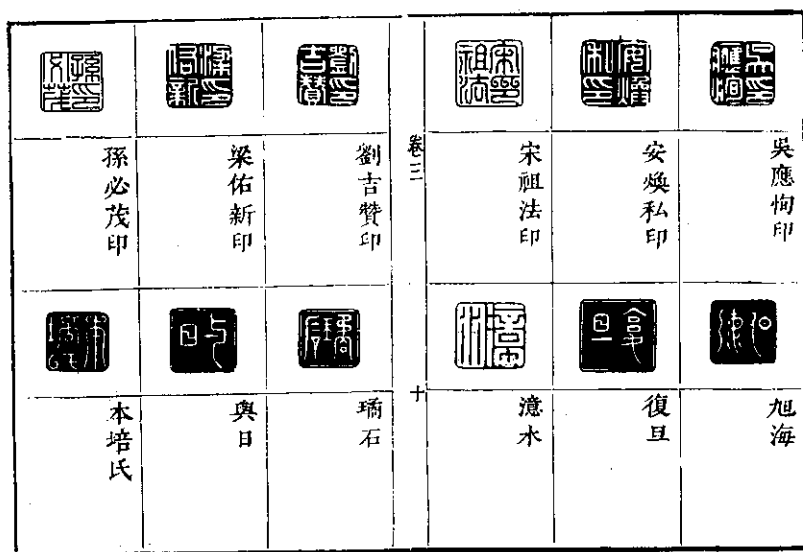 吳應恂印
安煥私印
宋祖法印
旭海
復旦
澺水
卷三
十
劉吉贊印
梁佑新印
孫必茂印
璚石
與日
本培氏